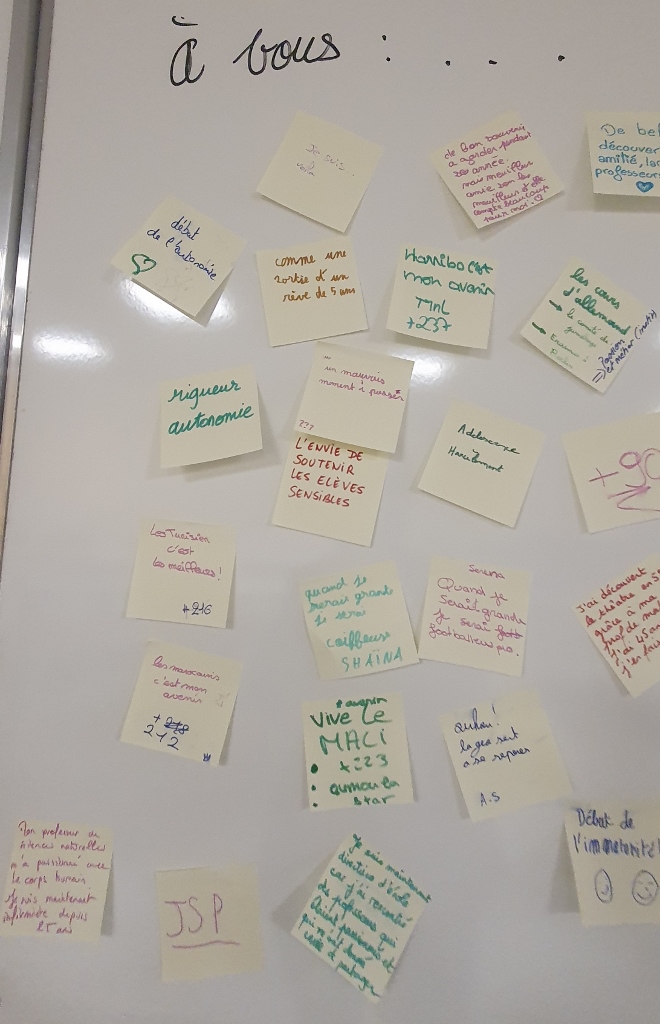 à vous : . . .
Je suis
voilà
de bon souvenir
a garder pendant
ses année.
mais meuilleus
amie son les
meuilleus et elle
compte beaucoup
pour moi.
De bel
découver
amitié, la
professeur
début
de l'autonomie
comme une
sortie et un
rêve de 5 ans
Harribo c'est
mon avenir
TML
+237
les cours
d'allemand
rigueur
autonomie
...
un mauvais
mment à passer
???
L'ENVIE DE
SOUTENIR
LES ELÈVES
SENSIBLES
Harcèlement
+90
Les Tunisien
c'est
les meilleures!
+216
quand je
serais grant
je serai
coiffeuse
SHAÏNA
Serena
Quand je
Serait grande
je serai
footballeus pro.
J'ai découvert
le théâtre en 5e
grâce à ma
prof de
J'ai 45 ans
les marocains
c'est mon
avenir
+
212
+ avenir
Vive Le
MALi
• +223
• oumou la
• star
la sert
a se reposer
A.S
Début de
l'immatorité!
Mon professeur de
sciences naturelles
m'a passionné avec
le corps humain
Je suis maintenant
infirmière depuis
15 ans
JSP
Je suis maintenant
directrice d'école
car j'ai rencontré
des professeurs qui
étaient passionnés et
qui m'ont donné
envie de partager